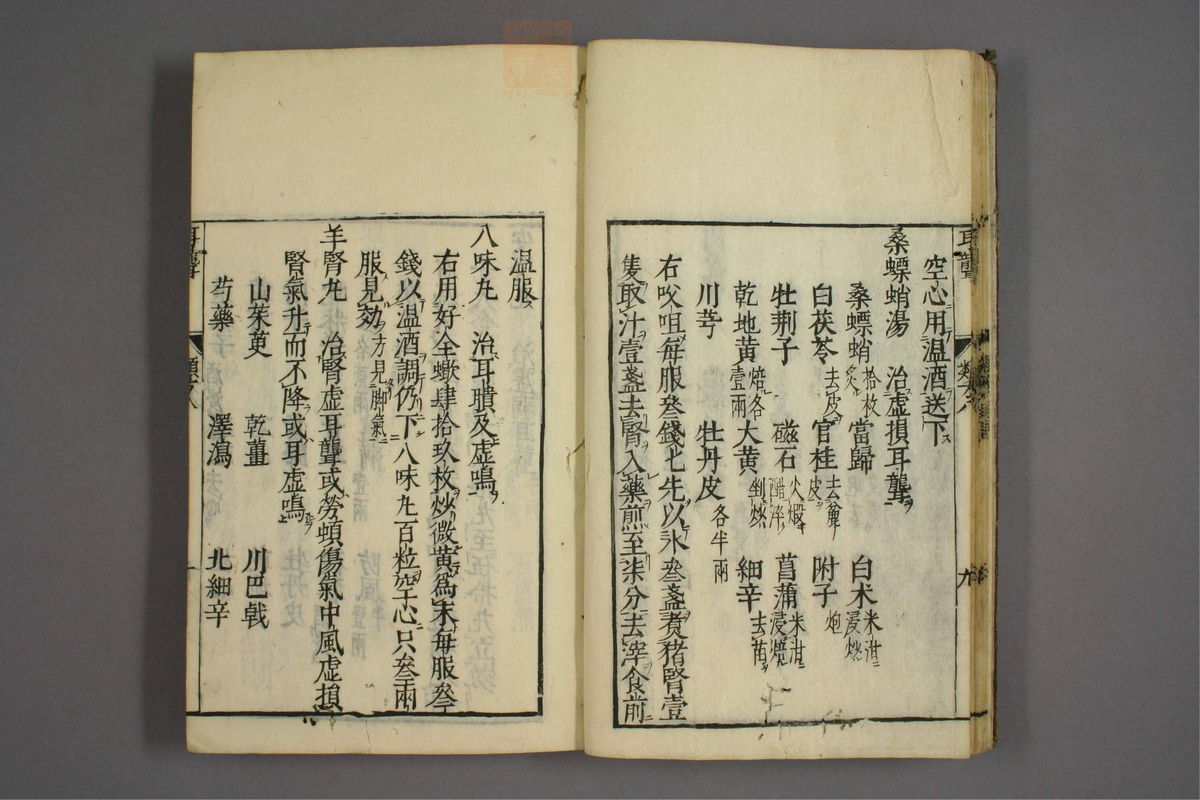 空心用温酒送下
桑螵蛸湯 治虛損耳聾
桑螵蛸炙拾枚 當歸 白术米泔浸炒
白茯苓去皮 官桂去麁皮 附子炮
牡荆子 磁石火煅醋淬 菖蒲米泔浸燒
乾地黄焙各壹兩 大黄剉炒 細辛去苗
川芎 牡丹皮各半兩
右㕮咀每服叄錢匕先以水叄盞煑猪腎壹
隻取汁壹盞去腎入藥煎至柒分去滓食前
温服
八味丸 治耳聵及虛鳴
右用好全蠍肆拾玖枚炒微黄爲末每服叄
錢以温酒調仍下八味丸百粒空心只叄兩
服見効方見脚氣
羊腎丸 治腎虛耳聾或勞頓傷氣中風虛損
腎氣升而不降或耳虛鳴
山茱萸 乾薑 川巴戟
芍藥 澤瀉 北細辛
耳聾
九